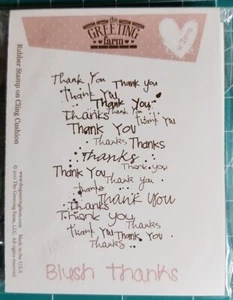 the
GREETING
farm
Rubber Stamp on Cling Cushion
Thank You Thank you
Thank You
Thank You
Thanks Thank you
Thank You
Thanks Thanks
Thanks
Thank You Thanks
Thank you
thanks Thank You
Thanks
Thank you
Thank You Thanks
Thanks
Blush thanks